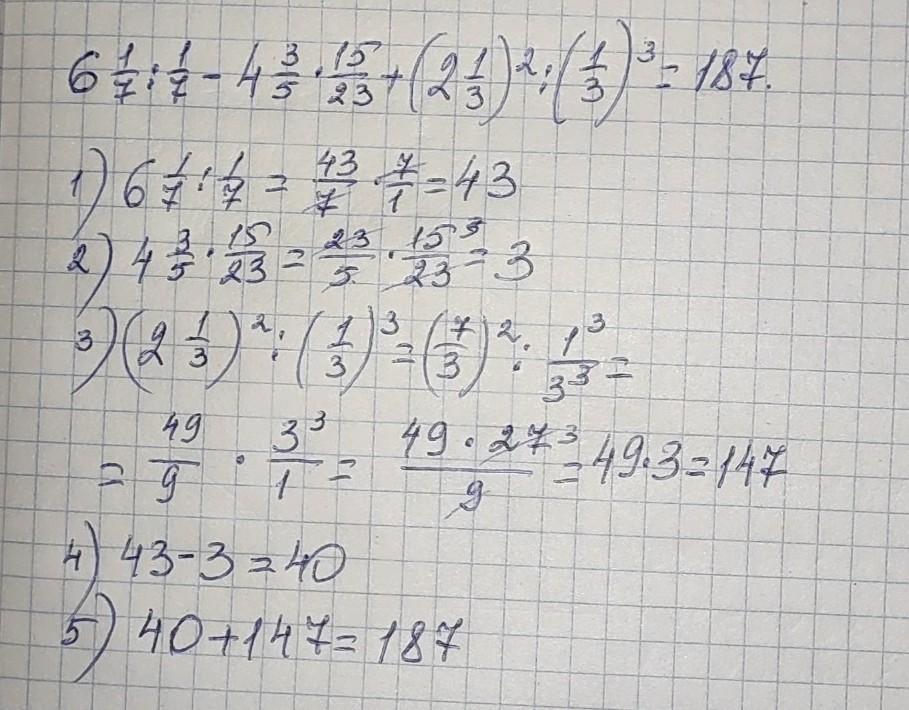 6 1/7 : 1/7 - 4 3/5 · 15/23 + (2 1/3)² : (1/3)³ = 187.
1) 6 1/7 : 1/7 = 43/7 · 7/1 = 43
2) 4 3/5 · 15/23 = 23/5 · 15³/23 = 3
3) (2 1/3)² : (1/3)³ = (7/3)² : 1³/3³ =
= 49/9 · 3³/1 = 49 · 27³/9 = 49·3 = 147
4) 43 - 3 = 40
5) 40 + 147 = 187